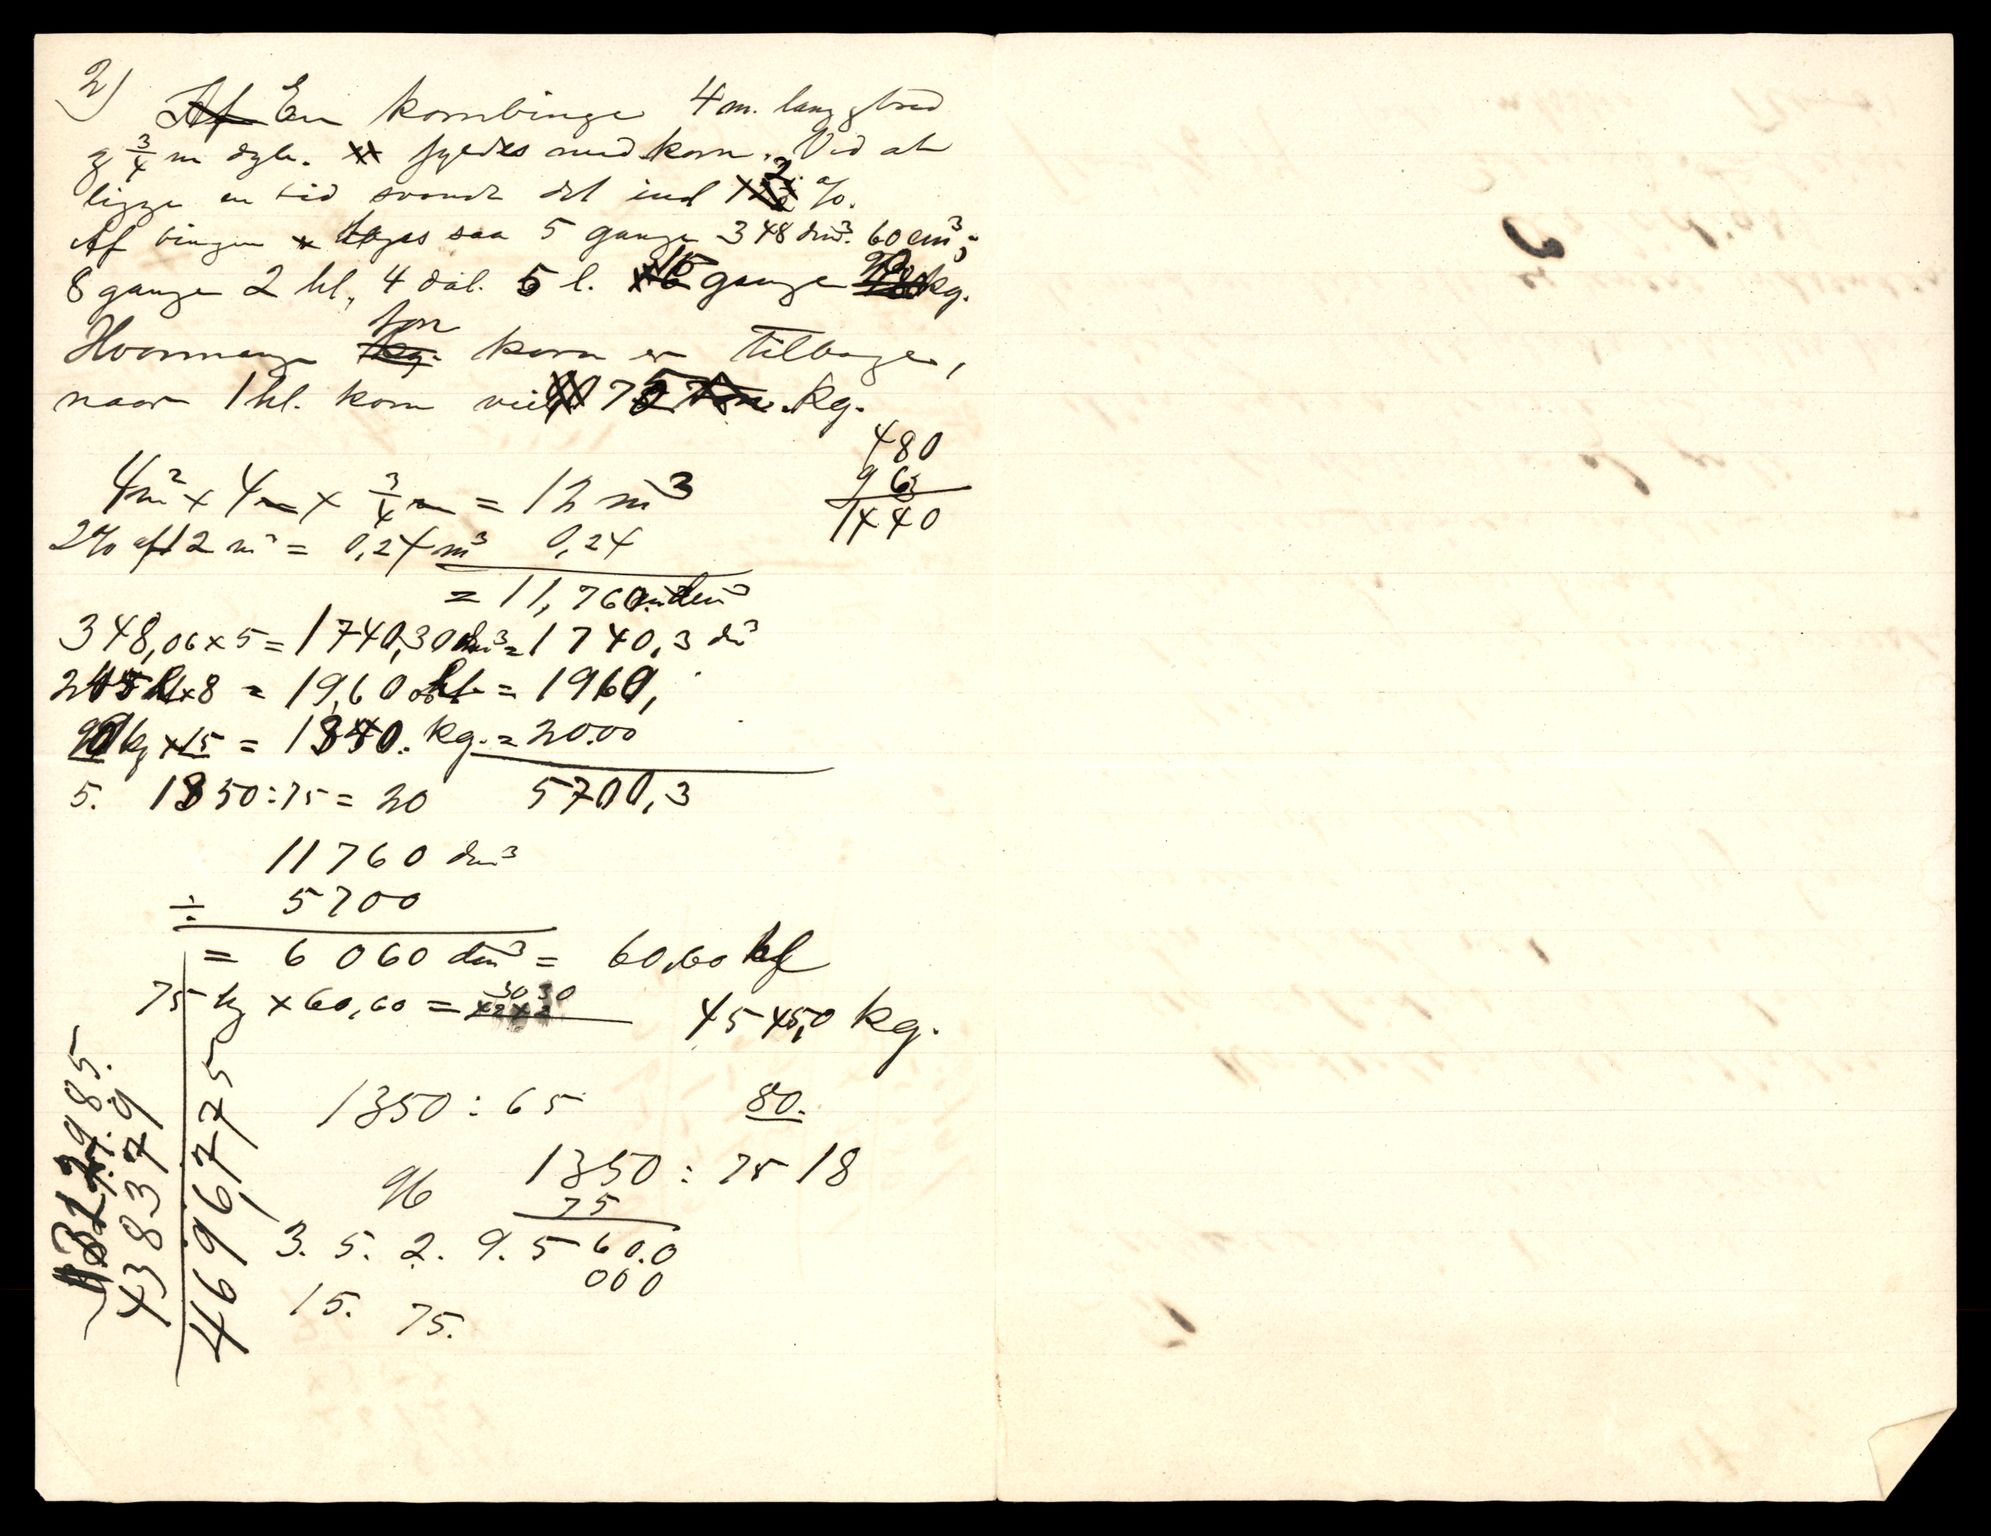 2)
Af En kornbinge 4 m. lang g bred
g 3/4 m dyb. fyldes med korn. Ved at
ligge en tid svandt det ind 2 %.
Af bingen toges saa 5 gange 348 dm³. 60 cm³;
8 gange 2 hl., 4 dal. 5 l. 15 gange kg.
Hvormange kg. ton korn er tilbage,
naar 1 hl. korn veier 75 kg.
480
96
1440
4 m² x 4 m x 3/4 m = 12 m³
2% af 12 m³ = 0,24 m³ 0,24
= 11,760 dm³
348,06 x 5 = 1740,30 dm³ = 1740,3 dm³
245 x 8 = 19,60 hl = 1960,
kg x 15 = kg. = 20.00
5. 1850 : 75 = 20 5700,3
11760 dm³
÷ 5700
= 6060 dm³ = 60,60 hl
75 kg x 60,60 = 4545,0 kg.
1350 : 65 80.
96 1350 : 75 18
75
3. 5. 2. 9. 5 60.0
000
15. 75.
985.
438379
4696775